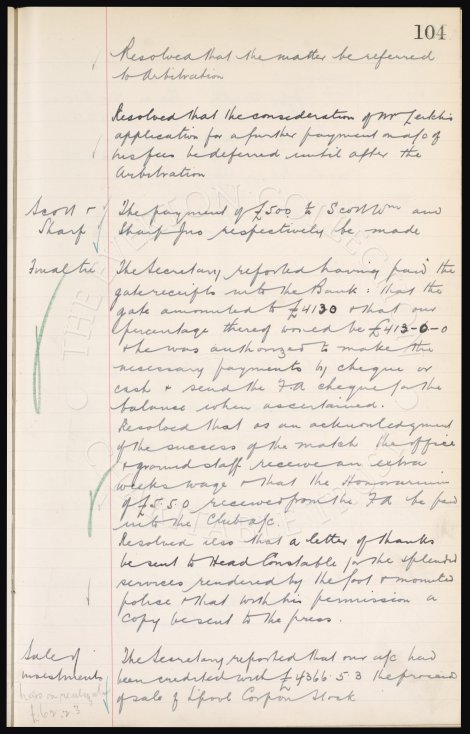 104
Resolved that the matter be referred
to Arbitration
Resolved that the consideration of Mr
application for a further payment on a/c of
his fees be deferred until after the
Arbitration
Scott &
Sharp
The payment of £500 to Scott Wm and
Sharp Jno respectively be made
Final tie
The Secretary reported having paid the
gate receipts into the Bank: that the
gate amounted to £4130 & that our
percentage thereof would be £413-0-0
& he was authorized to make the
necessary payments by cheque or
cash & send the F.A. cheque for the
balance when ascertained.
Resolved that as an acknowledgment
of the success of the match the office
& ground staff receive an extra
weeks wage & that the Honorarium
of £5.5.0 received from the F.A. be paid
into the Club a/c.
Resolved also that a letter of thanks
be sent to Head Constable for the splendid
services rendered by the foot & mounted
police & that with his permission a
copy be sent to the press.
Sale of
investments
loss on realizatn
£62.2.3
The Secretary reported that our a/c had
been credited with £4366.5.3 the proceeds
of sale of L'pool Corpon Stock
THE EVERTON COLLECTION